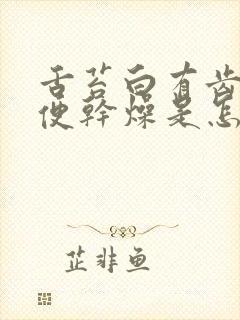 舌苔白有齿
便幹燥是怎
芷非鱼